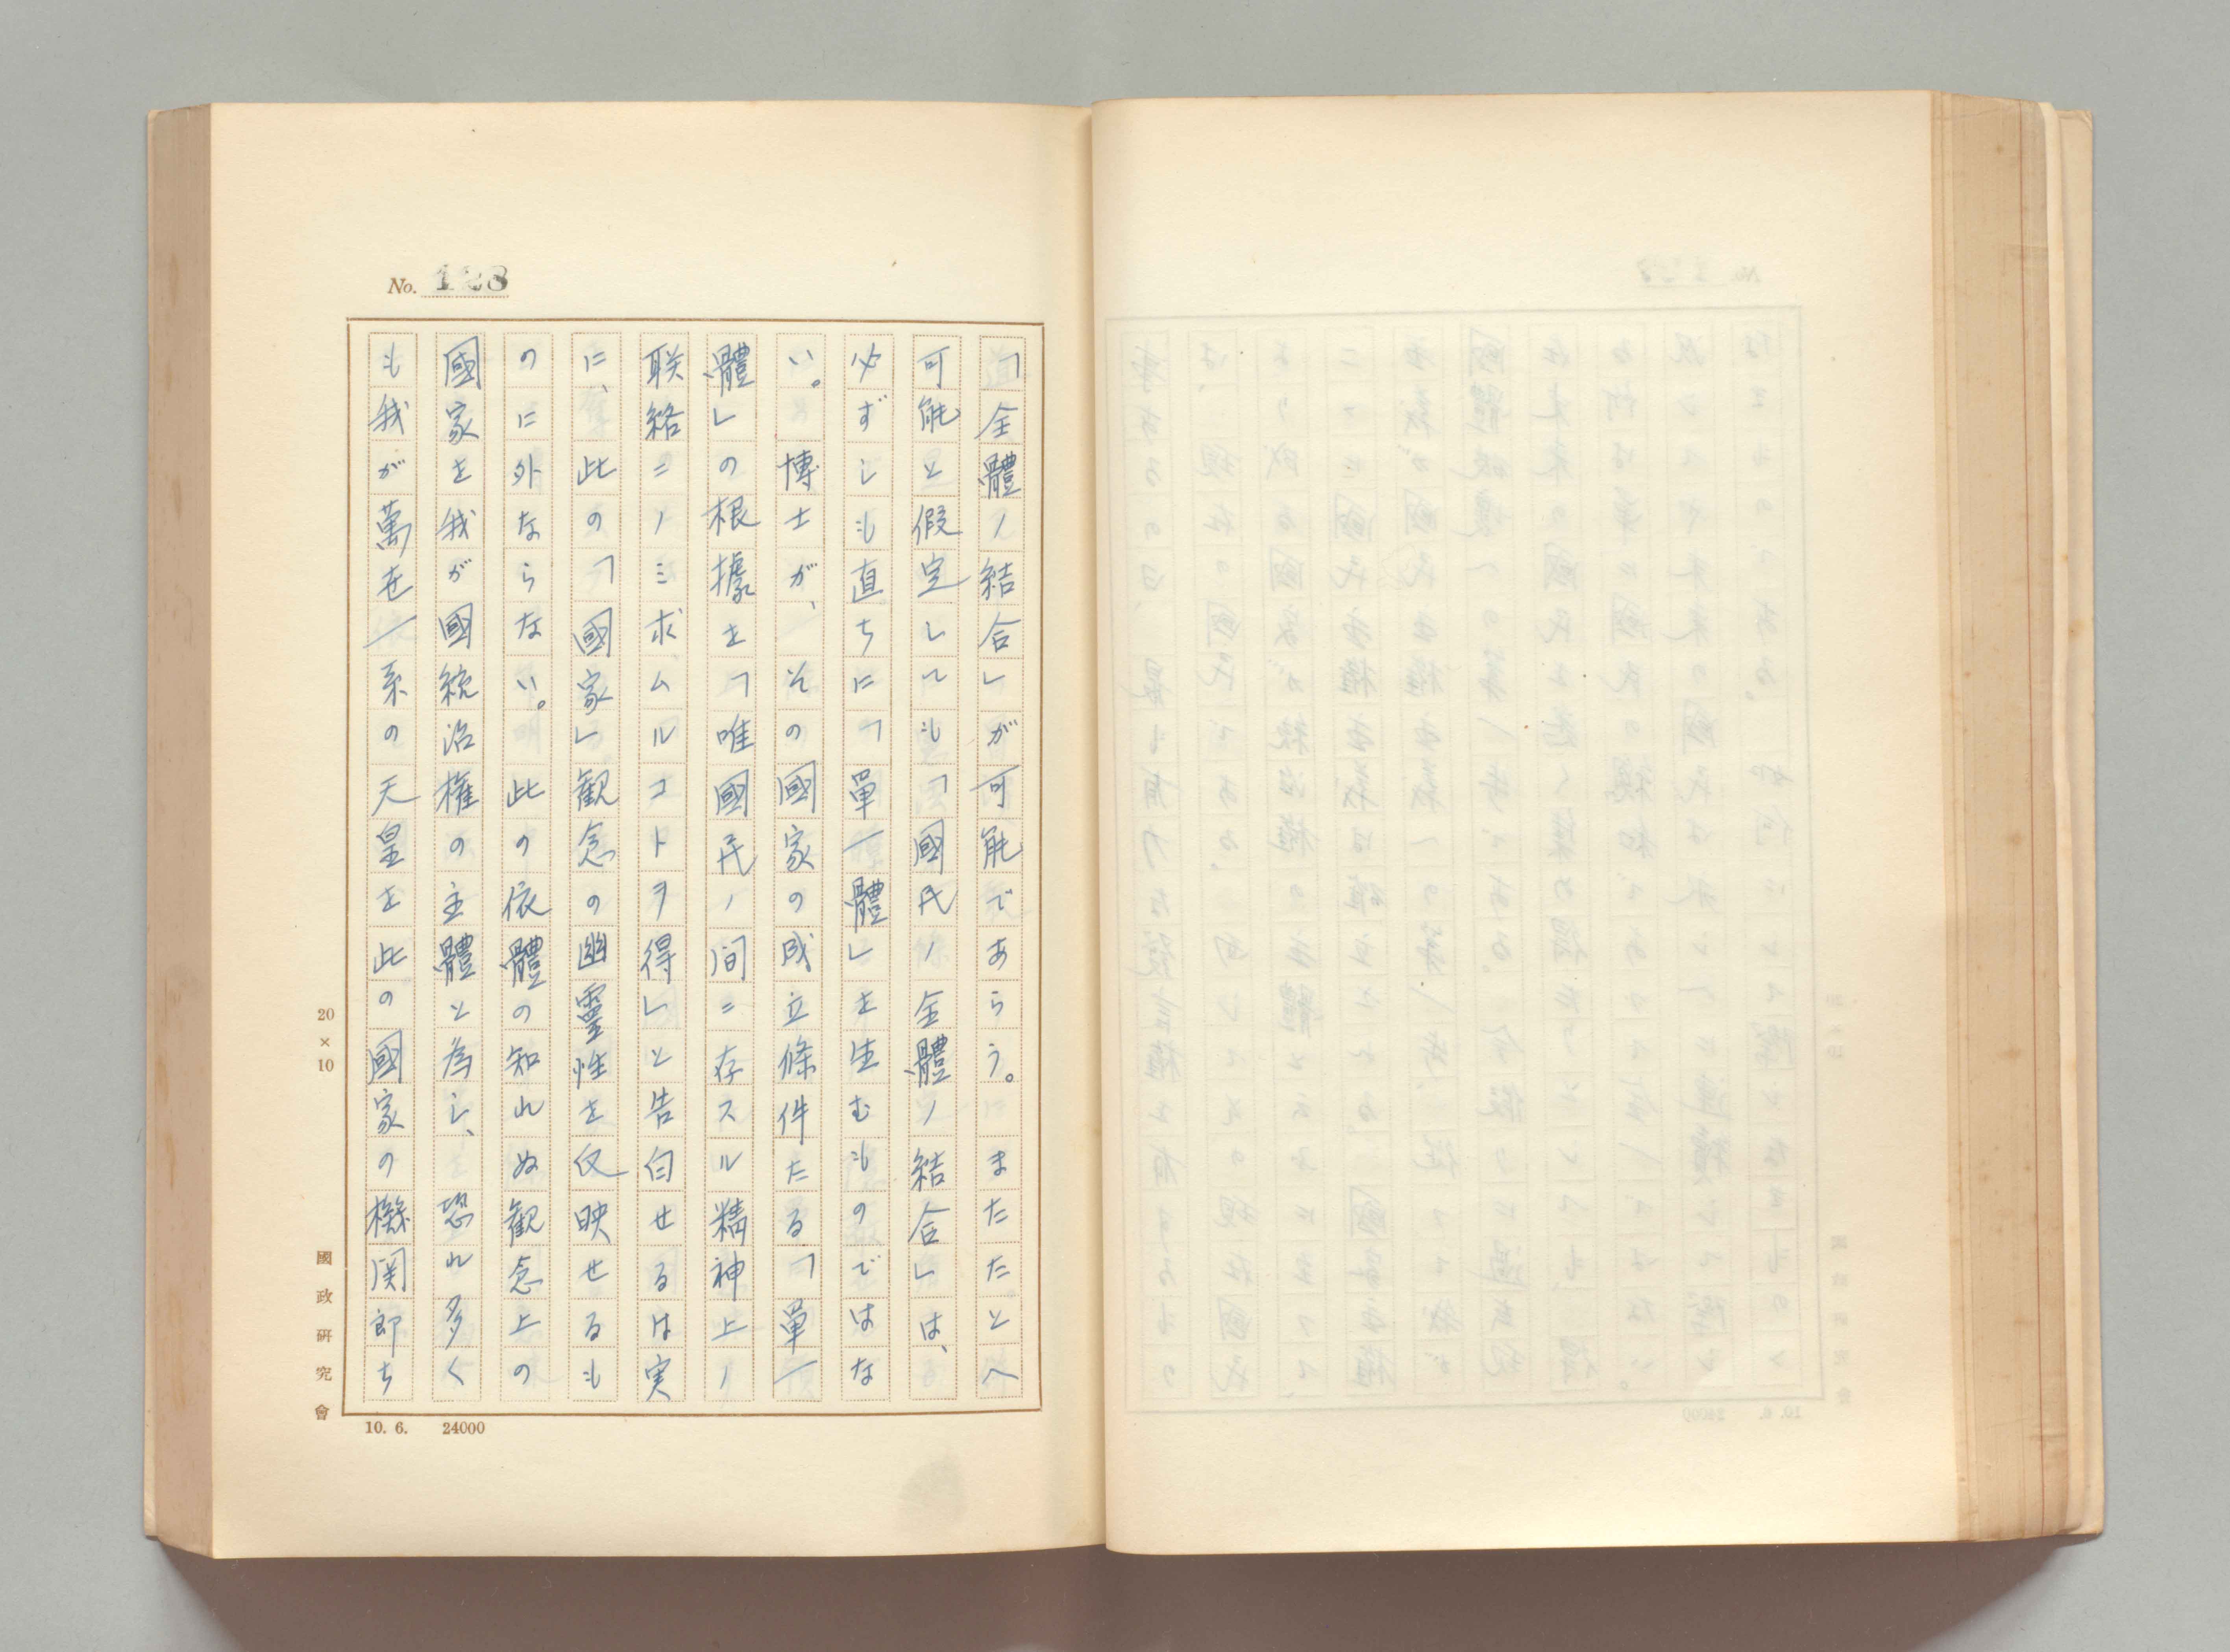 No. 128
「全體ノ結合」が可能であらう。またたとへ
可能と假定しても「國民ノ全體ノ結合」は、
必ずしも直ちに「單一體」を生むものではな
い。博士が、その國家の成立條件たる「單一
體」の根據を「唯國民ノ间ニ存スル精神上ノ
联絡ニノミ求ムルコトヲ得」と告白せるは実
に、此の「國家」観念の幽靈性を反映せるも
のに外ならない。此の依體の知れぬ観念上の
國家を我が國統治権の主體と為し、恐れ多く
も我が萬世一系の天皇を此の國家の機関即ち
20×10
國政研究會
10. 6. 24000